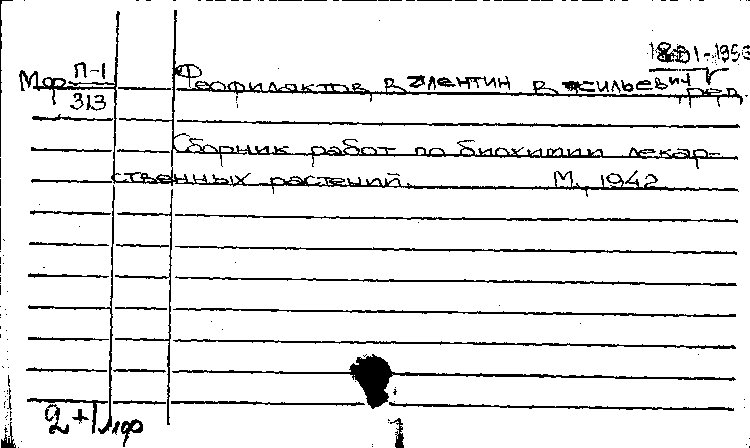 П-1
Мор 313
Феофилактов, Валентин Васильевич, ред.
Сборник работ по биохимии лекар-
ственных растений.          М., 1942
2+1